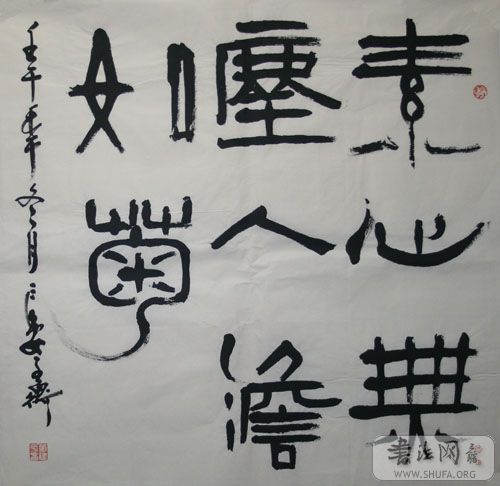 素心無
塵人澹
如菊
壬午年冬月
書法网
WWW.SHUFA.ORG